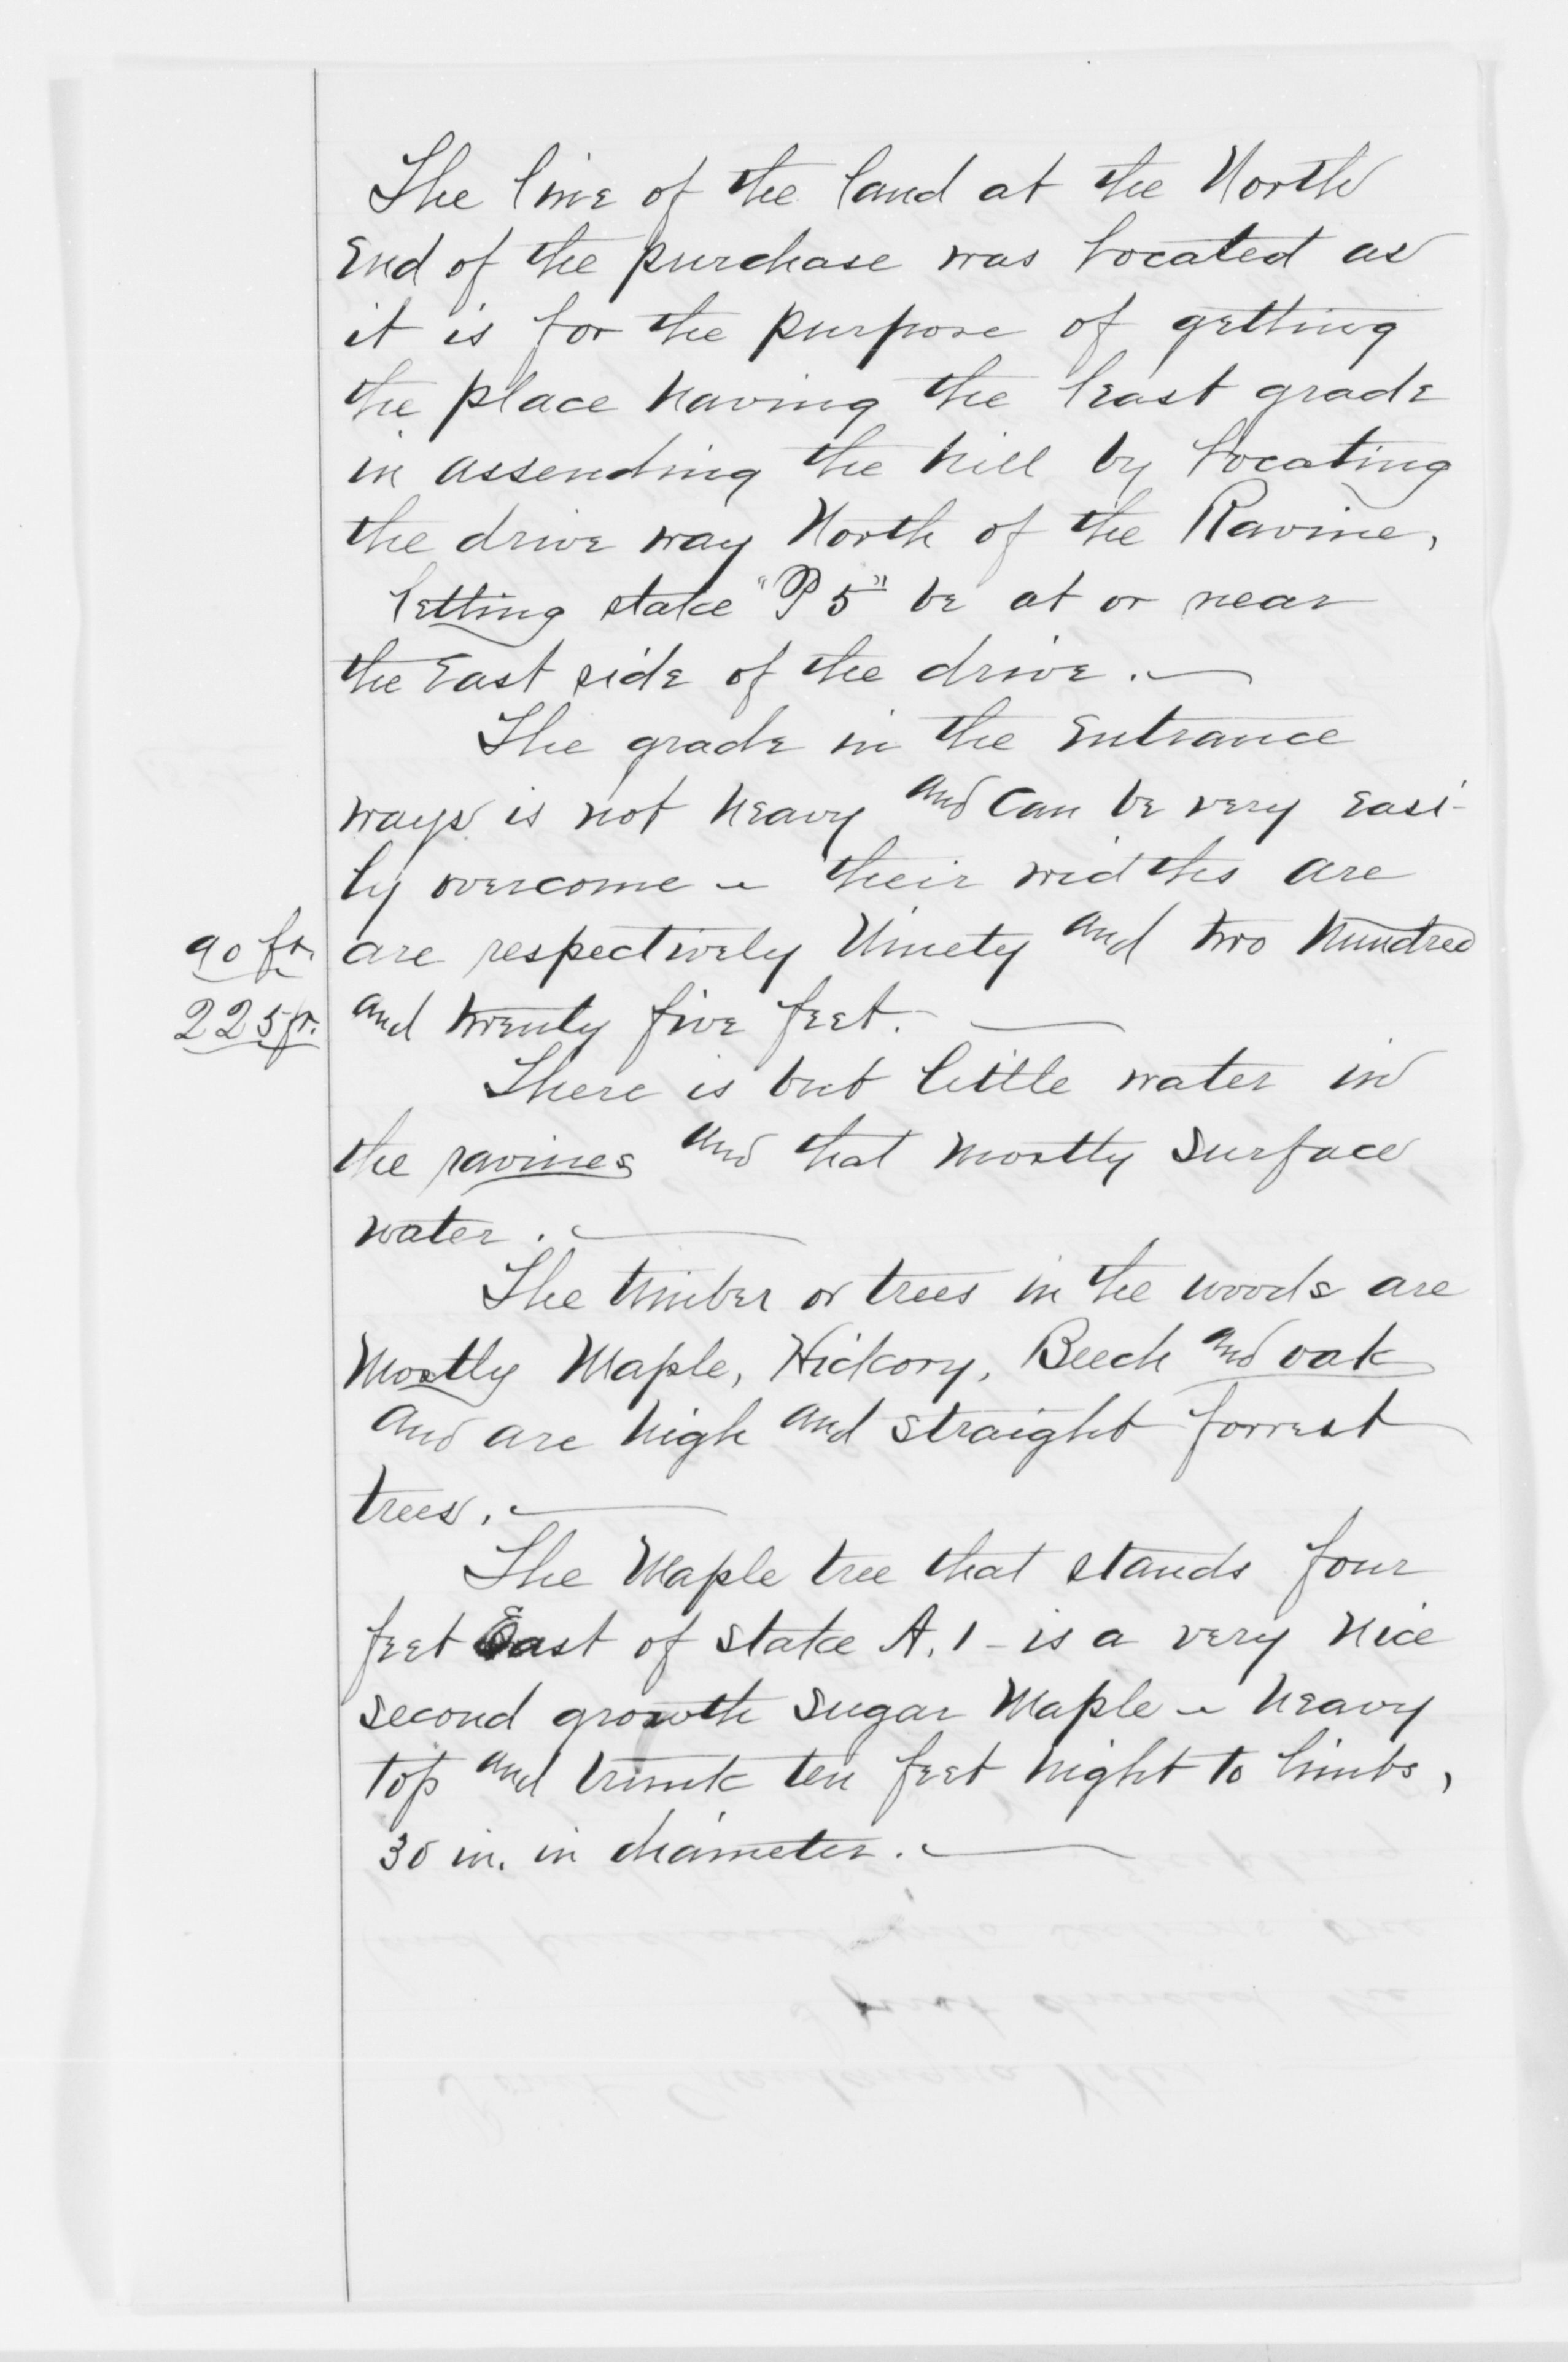 The line of the land at the North
End of the purchase was located as
it is for the purpose of getting
the place having the least grade
in assending the hill by locating
the drive way North of the Ravine,
letting stake "P 5" be at or near
the East side of the drive. —
The grade in the Entrance
ways is not heavy and can be very easi-
ly overcome - their widths are
90 ft. are respectively Ninety and two hundred
225 ft. and twenty five feet. —
There is but little water in
the ravines and that mostly surface
water. —
The timber or trees in the woods are
Mostly Maple, Hickory, Beech and oak
and are high and straight forrest
trees. —
The Maple tree that stands four
feet East of stake A. 1 - is a very nice
second growth sugar Maple - heavy
top and trunk ten feet hight to limbs,
30 in. in diameter. —